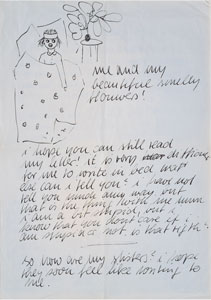 me and my
beautiful smelly
flowers!
i hope you can still read
my letter! it is very difficult
for me to write in bed what
else can i tell you? i have not
tell you much any way but
that is the thing with me mum
I am a bit stupid, but i
know that you dont care if i
am stupid or not is that right?
so how are my sisters? i hope
they soon feel like writing to
me.